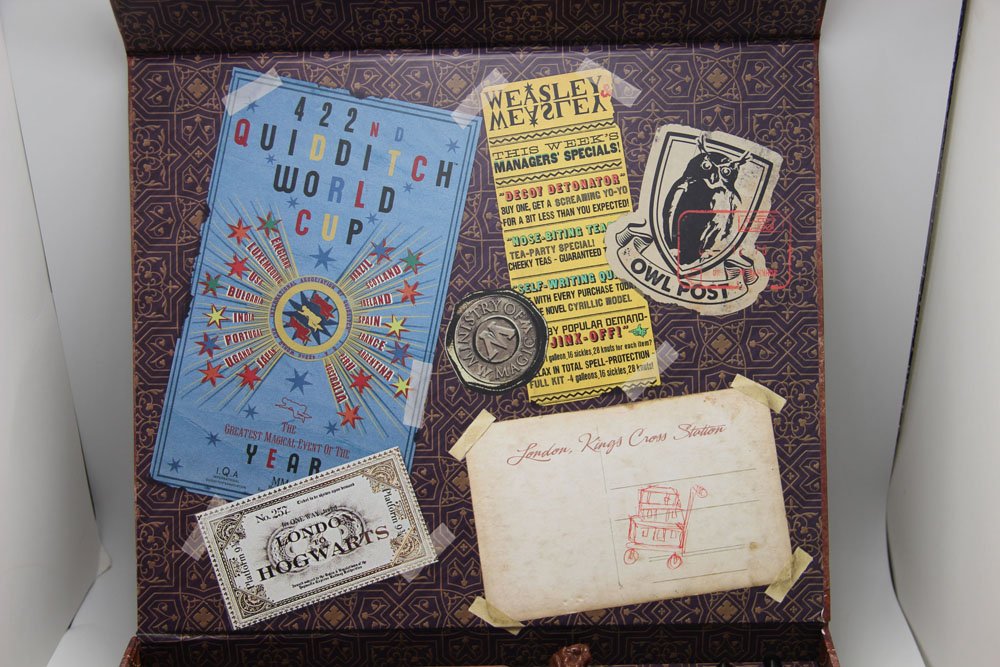 422ND
QUIDDITCH
WORLD
CUP
LUXEMBOURG
USE
BULGARIA
INDIA
PORTUGAL
UGANDA
JAPAN
BRAZIL
SCOTLAND
IRELAND
SPAIN
FRANCE
ARGENTINA
PERU
AUSTRALIA
THE
GREATEST MAGICAL EVENT OF THE
YEAR
I.Q.A
WEASLEY &
WEASLEY
THIS WEEK'S
MANAGERS' SPECIALS!
"DECOY DETONATOR"
BUY ONE, GET A SCREAMING YO-YO
FOR A BIT LESS THAN YOU EXPECTED!
"NOSE-BITING TEA
TEA-PARTY SPECIAL!
CHEEKY TEAS - GUARANTEED
"SELF-WRITING QU
WITH EVERY PURCHASE TOD
E NOVEL CYRILLIC MODEL
BY POPULAR DEMAND-
JINX-OFF!"
galleon, 16 sickles, 28 knuts for each item?
ELAX IN TOTAL SPELL-PROTECTION-
FULL KIT - 4 galleons, 16 sickles, 28 knuts!
OWL POST
MINISTRY OF MAGIC
M
No. 257
Ticket to be shown upon demand
for ONE WAY travel
LONDON
TO
HOGWARTS
Platform 9
Platform 9
London, King's Cross Station